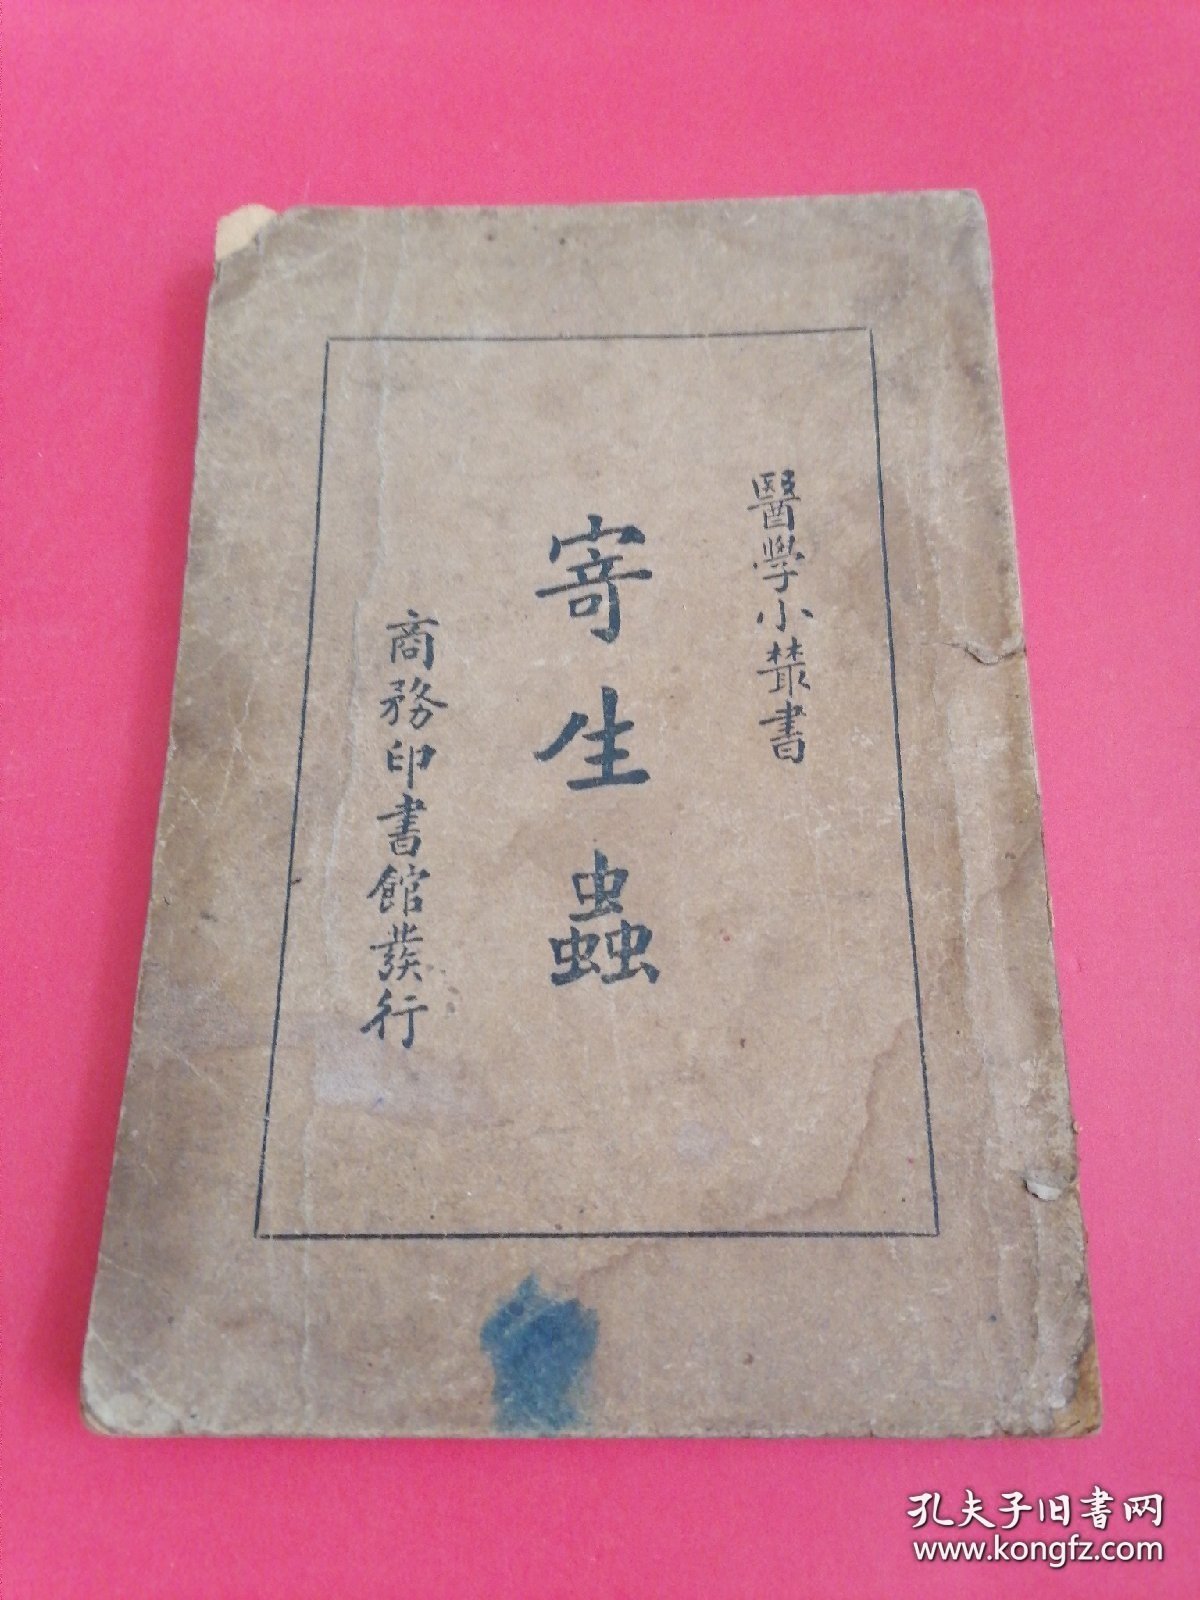 醫學小叢書
寄生蟲
商務印書館發行
孔夫子旧书网
www.kongfz.com